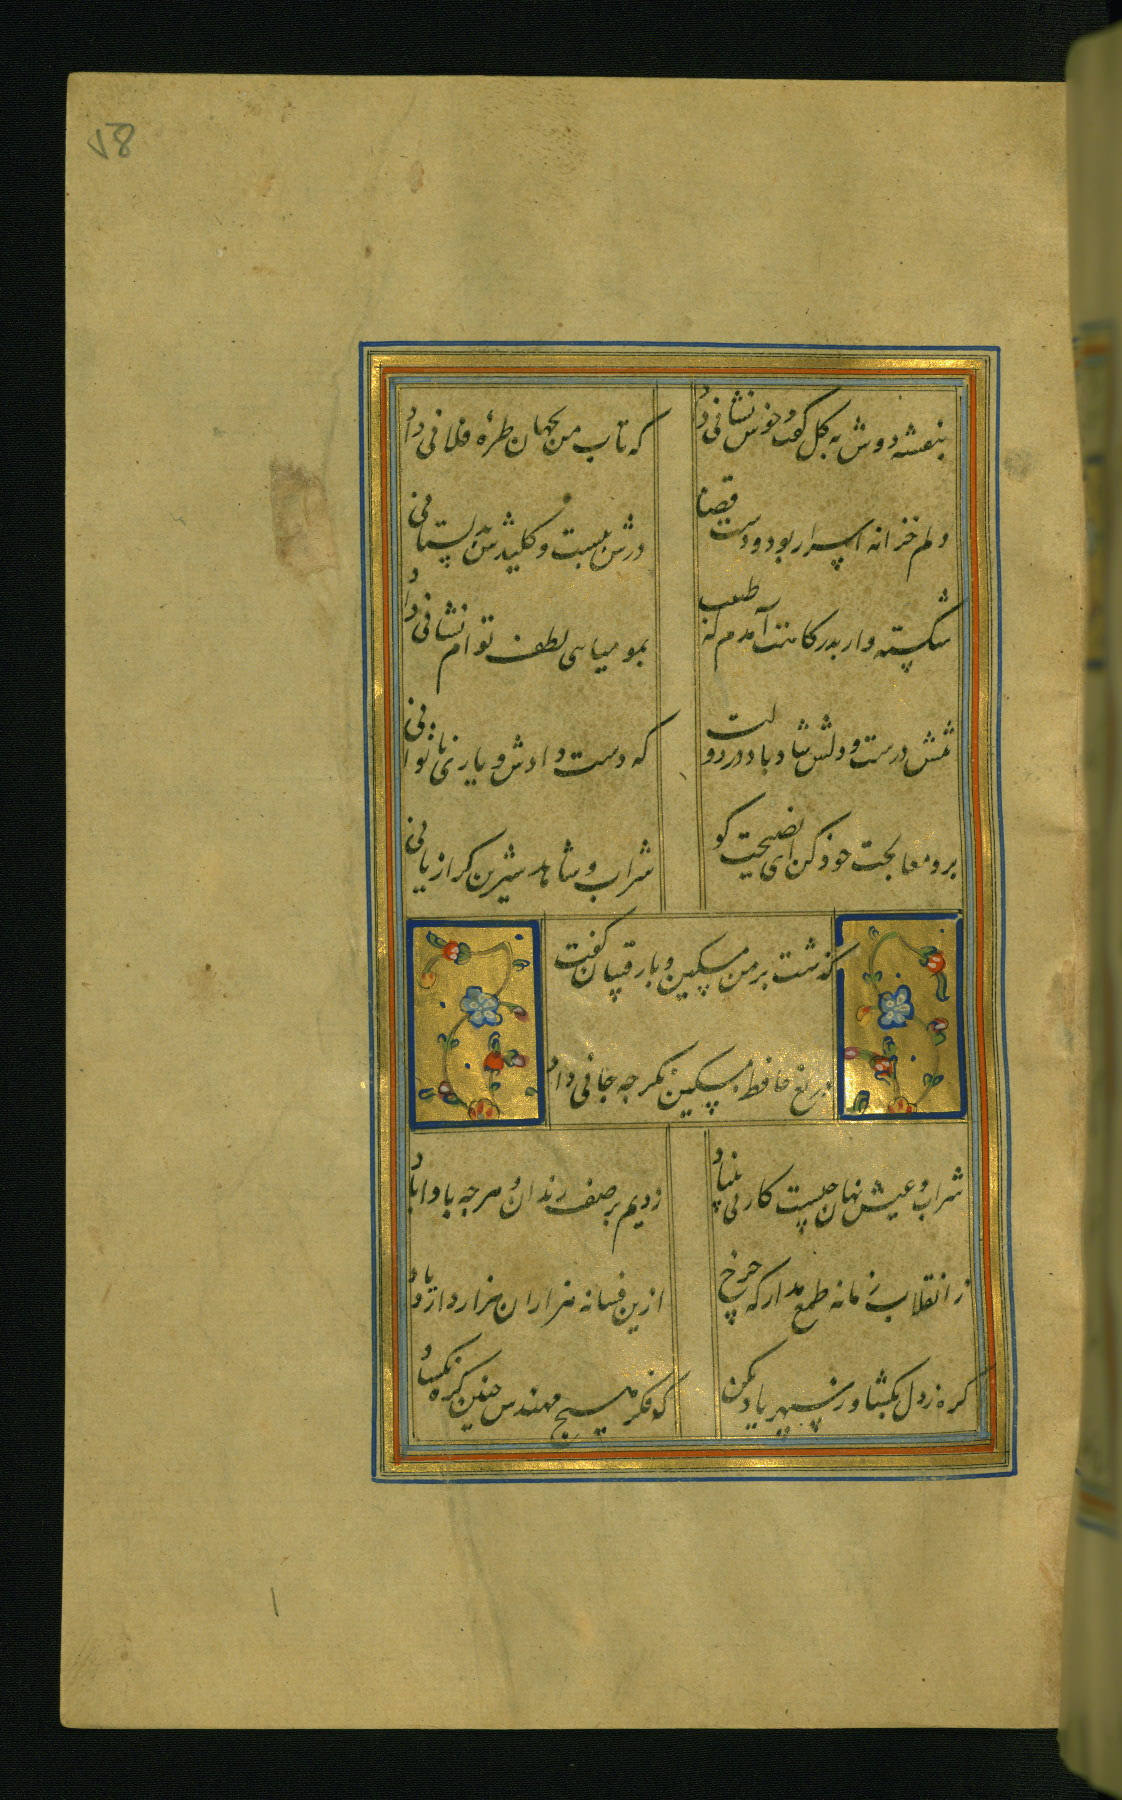 58
بنفشه دوش به گل گفت و خوش نشانی داد
که تاب من بجهان طره فلانی داد
دلم خزانه اسرار بود و دست قضا
درش ببست و کلیدش بدلستانی
شکسته وار بدرگاهت آمدم که طبیب
بمومیایی لطف توام نشانی داد
تنش درست و دلش شاد باد در دولت
که دست دادش و یاری ناتوانی
برو معالجت خود کن ای نصیحت گو
شراب و شاهد شیرین کرا زیانی
گذشت بر من مسکین و با رقیبان گفت
دریغ حافظ مسکین من چه جانی داد
شراب و عیش نهان چیست کار بی بنیاد
زدیم بر صف رندان و هرچه باداباد
ز انقلاب زمانه طمع مدار که چرخ
ازین فسانه هزاران هزار دارد یاد
گره ز دل بگشا وز سپهر یاد مکن
که فکر هیچ مهندس چنین گره نگشاد